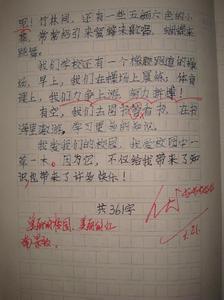 里！竹林间，还有一些五颜六色的小
花，常常招引来蜜蜂来歌唱，蝴蝶来
跳舞。
我们学校还有一个橡胶跑道的操
场，早上，我们在操场上晨练，体育
课上，我们力争上游，努力拼搏！
有空，我们去图书馆看书，在书
海里遨游，学习更多的知识。
我爱我们的校园，我爱校园中一
草一木。因为它，不仅给我带来了知
识也带来了许多快乐！
共361字
美丽的校园，美丽的